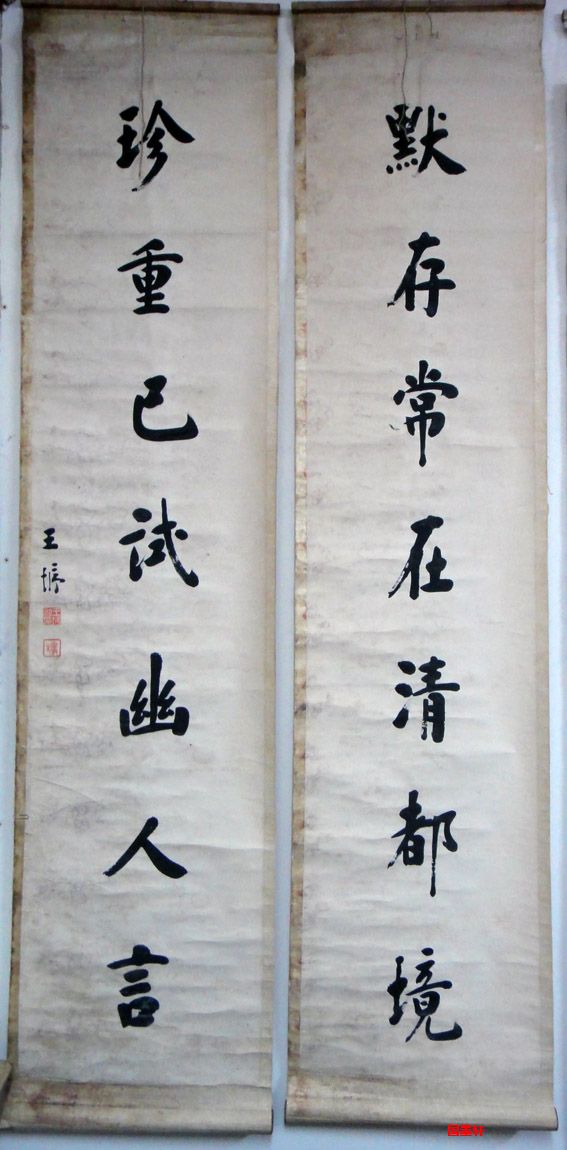 默存常在清都境
珍重已試幽人言
王